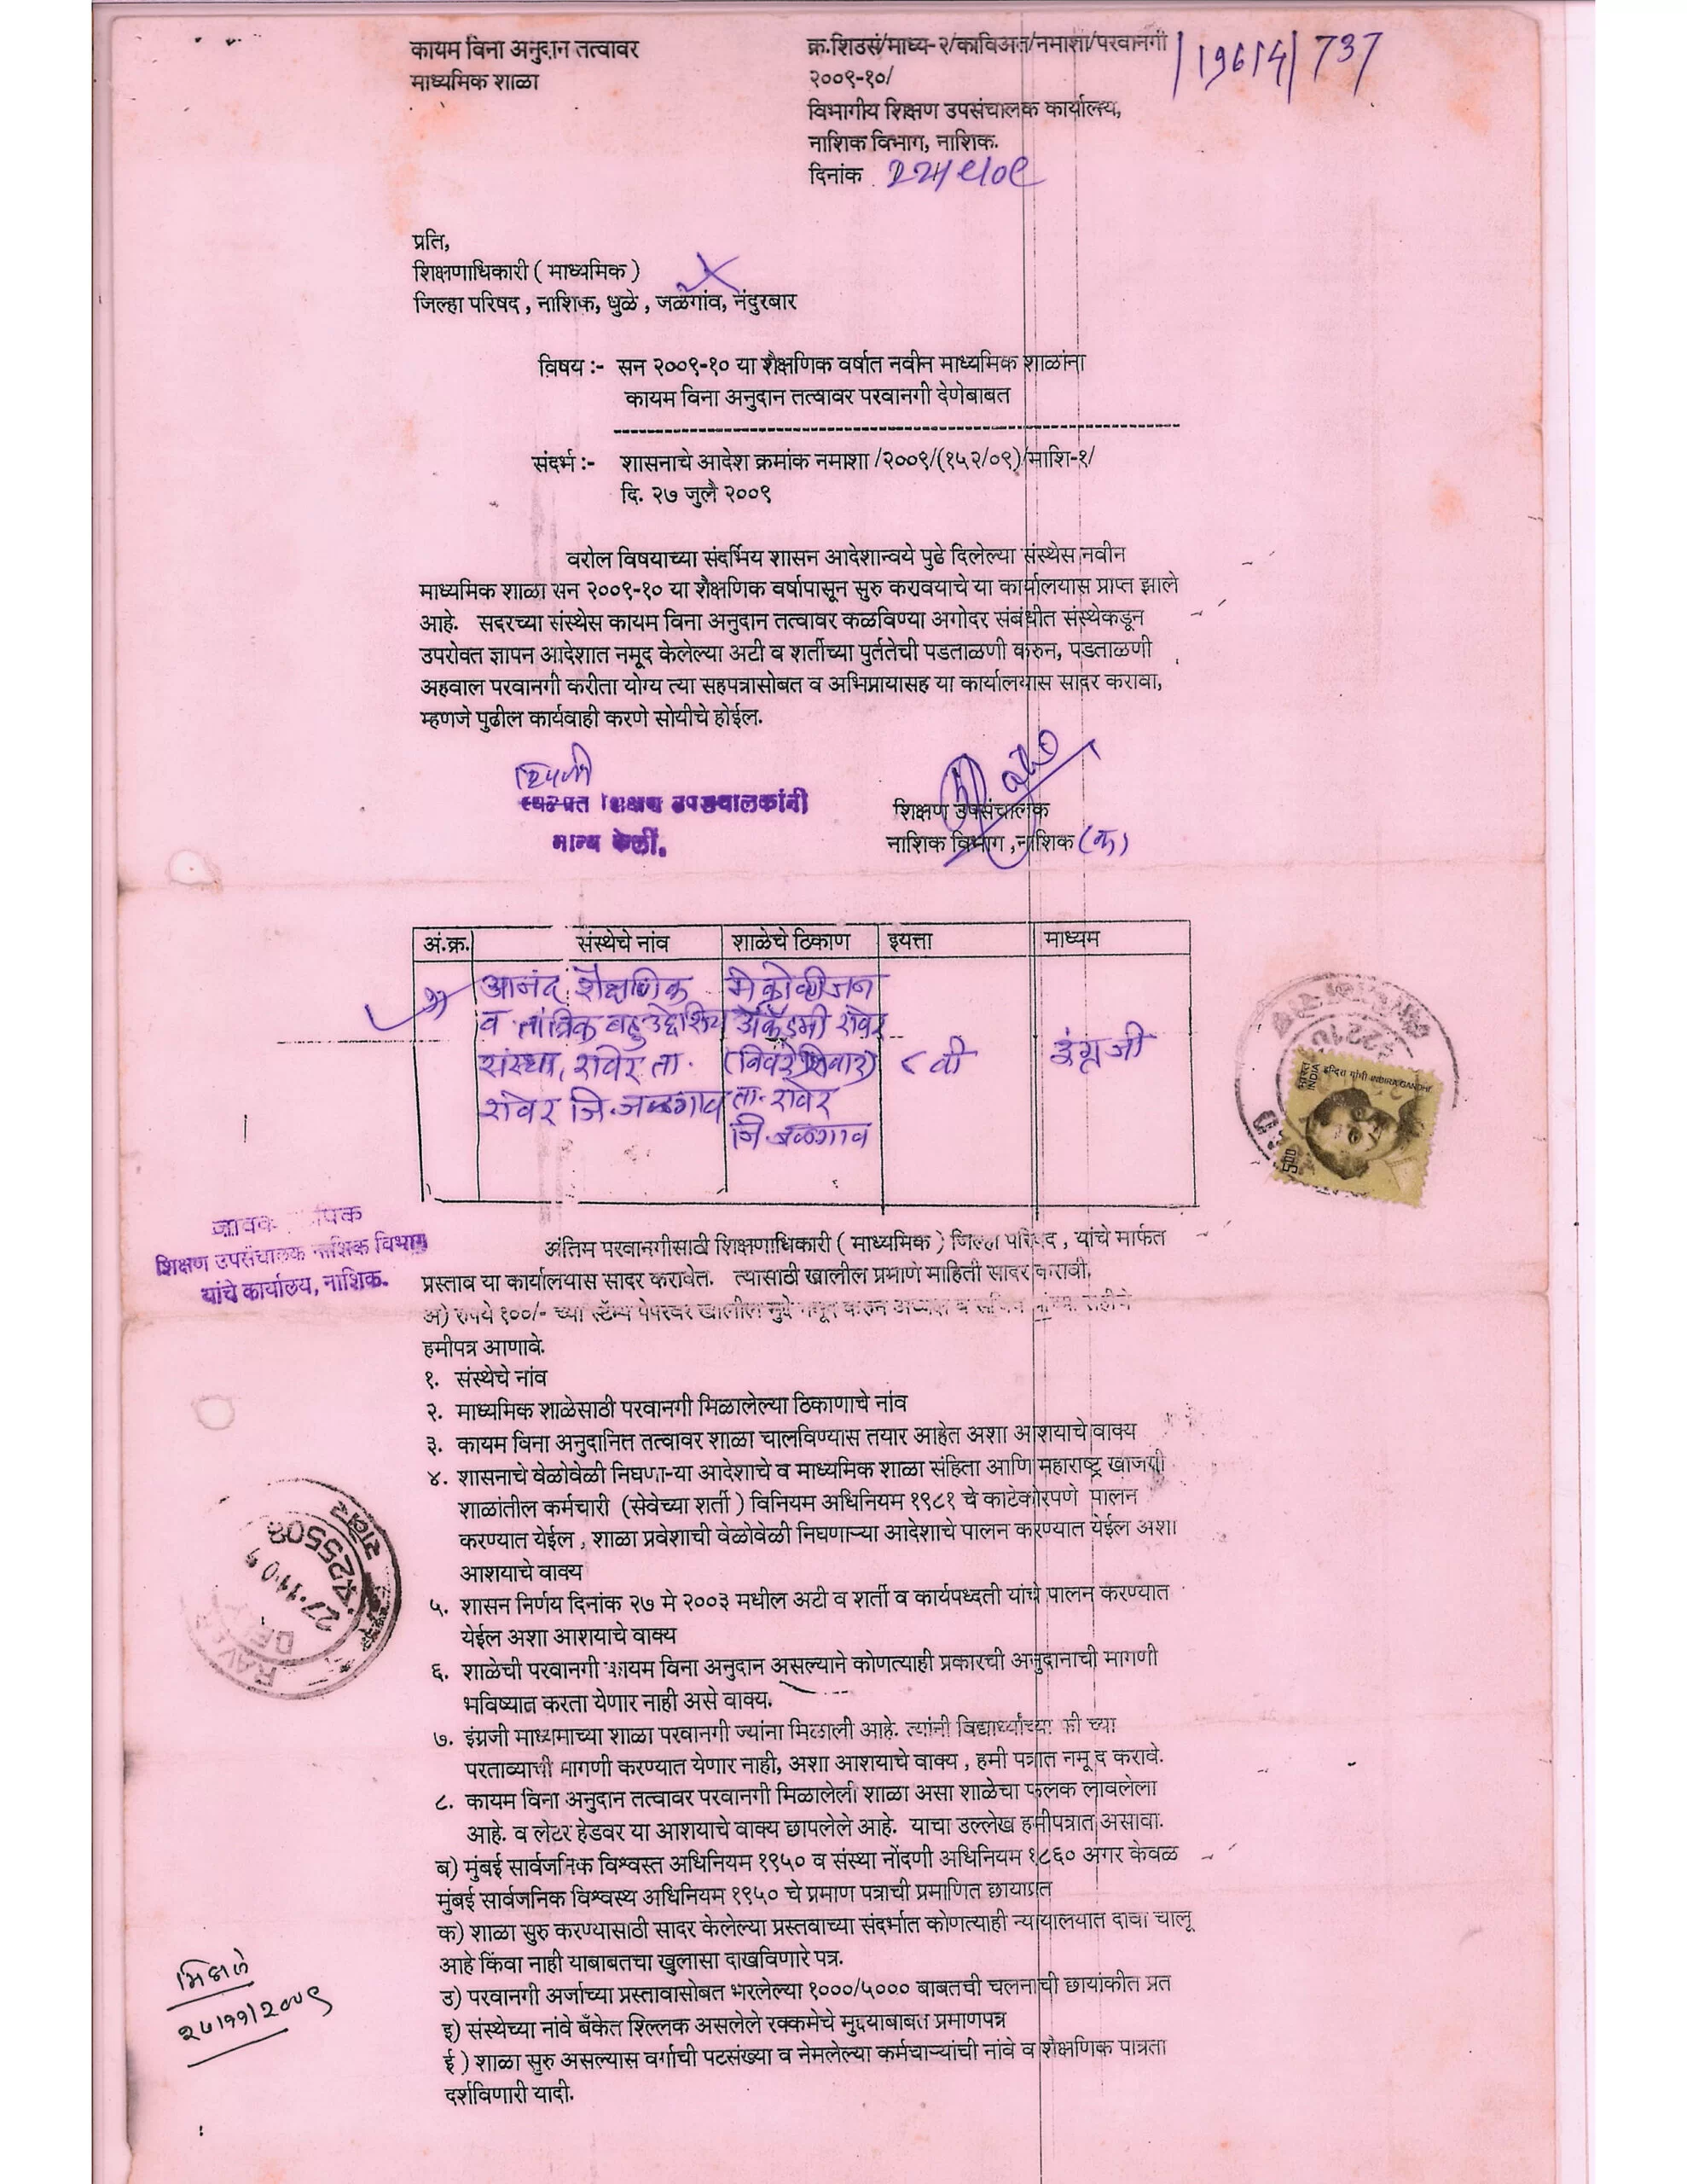 कायम विना अनुदान तत्वावर
माध्यमिक शाळा
क्र.शिउसं/माध्य-२/काविअत/नमाशा/परवानगी
२००९-१०/
विभागीय शिक्षण उपसंचालक कार्यालय,
नाशिक विभाग, नाशिक.
दिनांक
प्रति,
शिक्षणाधिकारी ( माध्यमिक )
जिल्हा परिषद , नाशिक, धुळे , जळगांव, नंदुरबार
विषय :- सन २००९-१० या शैक्षणिक वर्षात नवीन माध्यमिक शाळांना
कायम विना अनुदान तत्वावर परवानगी देणेबाबत
संदर्भ :- शासनाचे आदेश क्रमांक नमाशा /२००९/(१५२/०९)/माशि-१/
दि. २७ जुलै २००९
वरील विषयाच्या संदर्भिय शासन आदेशान्वये पुढे दिलेल्या संस्थेस नवीन
माध्यमिक शाळा सन २००९-१० या शैक्षणिक वर्षापासून सुरु करावयाचे या कार्यालयास प्राप्त झाले
आहे. सदरच्या संस्थेस कायम विना अनुदान तत्वावर कळविण्या अगोदर संबंधीत संस्थेकडून
उपरोक्त ज्ञापन आदेशात नमूद केलेल्या अटी व शर्तीच्या पुर्ततेची पडताळणी करुन, पडताळणी
अहवाल परवानगी करीता योग्य त्या सहपत्रासोबत व अभिप्रायासह या कार्यालयास सादर करावा,
म्हणजे पुढील कार्यवाही करणे सोयीचे होईल.
शिक्षण उपसंचालकांनी
मान्य केली.
शिक्षण उपसंचालक
नाशिक विभाग ,नाशिक
अं.क्र. संस्थेचे नांव शाळेचे ठिकाण इयत्ता माध्यम
आनंद शैक्षणिक
व तांत्रिक बहुउद्देशिय अॅकॅडमी रावेर
संस्था, रावेर ता. ८ वी इंग्रजी
रावेर जि.जळगाव ता. रावेर
जि.जळगाव
जावक
शिक्षण उपसंचालक नाशिक विभाग
यांचे कार्यालय, नाशिक.
INDIA इन्दिरा गांधी INDIRA GANDHI
अंतिम परवानगीसाठी शिक्षणाधिकारी ( माध्यमिक ) जिल्हा परिषद , यांचे मार्फत
प्रस्ताव या कार्यालयास सादर करावेत. त्यासाठी खालील प्रमाणे माहिती सादर करावी.
अ) रुपये १००/- च्या स्टॅम्प पेपरवर खालील मुद्दे नमूद करुन अध्यक्ष व सचिव यांच्या सहीने
हमीपत्र आणावे.
१. संस्थेचे नांव
२. माध्यमिक शाळेसाठी परवानगी मिळालेल्या ठिकाणाचे नांव
३. कायम विना अनुदानित तत्वावर शाळा चालविण्यास तयार आहेत अशा आशयाचे वाक्य
४. शासनाचे वेळोवेळी निघणा-या आदेशाचे व माध्यमिक शाळा संहिता आणि महाराष्ट्र खाजगी
शाळांतील कर्मचारी (सेवेच्या शर्ती ) विनियम अधिनियम १९८१ चे काटेकोरपणे पालन
करण्यात येईल , शाळा प्रवेशाची वेळोवेळी निघणाऱ्या आदेशाचे पालन करण्यात येईल अशा
आशयाचे वाक्य
५. शासन निर्णय दिनांक २७ मे २००३ मधील अटी व शर्ती व कार्यपध्दती यांचे पालन करण्यात
येईल अशा आशयाचे वाक्य
६. शाळेची परवानगी कायम विना अनुदान असल्याने कोणत्याही प्रकारची अनुदानाची मागणी
भविष्यात करता येणार नाही असे वाक्य.
७. इंग्रजी माध्यमाच्या शाळा परवानगी ज्यांना मिळाली आहे. त्यांनी विद्यार्थ्यांच्या फी च्या
परताव्याची मागणी करण्यात येणार नाही, अशा आशयाचे वाक्य , हमी पत्रात नमू द करावे.
८. कायम विना अनुदान तत्वावर परवानगी मिळालेली शाळा असा शाळेचा फलक लावलेला
आहे. व लेटर हेडवर या आशयाचे वाक्य छापलेले आहे. याचा उल्लेख हमीपत्रात असावा.
ब) मुंबई सार्वजनिक विश्वस्त अधिनियम १९५० व संस्था नोंदणी अधिनियम १८६० अगर केवळ
मुंबई सार्वजनिक विश्वस्थ अधिनियम १९५० चे प्रमाण पत्राची प्रमाणित छायाप्रत
क) शाळा सुरु करण्यासाठी सादर केलेल्या प्रस्तवाच्या संदर्भात कोणत्याही न्यायालयात दावा चालू
आहे किंवा नाही याबाबतचा खुलासा दाखविणारे पत्र.
उ) परवानगी अर्जाच्या प्रस्तावासोबत भरलेल्या १०००/५००० बाबतची चलनाची छायांकीत प्रत
इ) संस्थेच्या नांवे बँकेत शिल्लक असलेले रक्कमेचे मुद्दयाबाबत प्रमाणपत्र
ई ) शाळा सुरु असल्यास वर्गाची पटसंख्या व नेमलेल्या कर्मचाऱ्यांची नांवे व शैक्षणिक पात्रता
दर्शविणारी यादी.
मिळाले